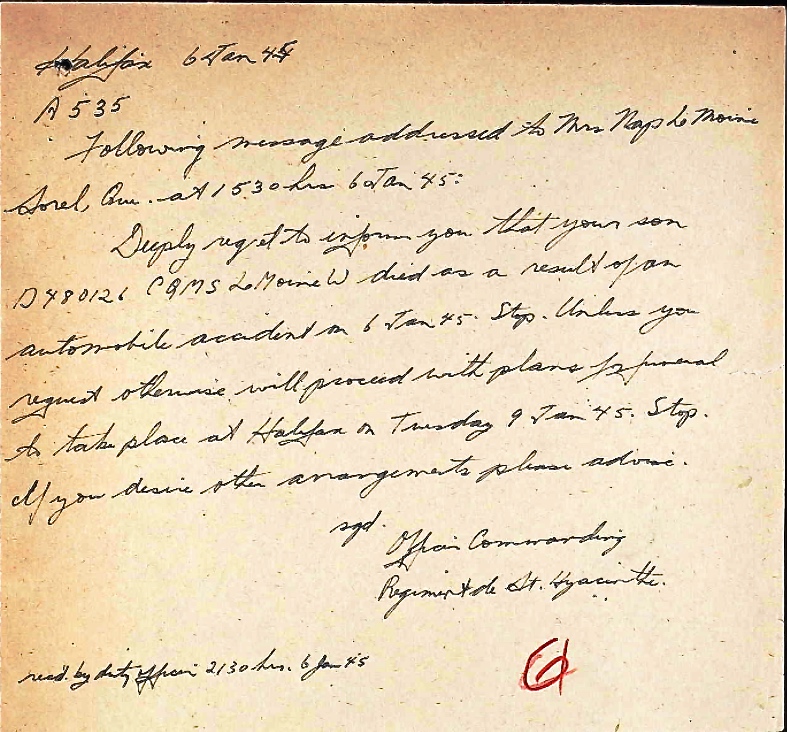 Halifax 6 Jan 45
A 535
Following message addressed to Mrs Nap LeMoine
Sorel, Que. at 1530 hrs 6 Jan 45:
Deeply regret to inform you that your son
D480126 CQMS LeMoine W died as a result of an
automobile accident on 6 Jan 45. Stop. Unless you
request otherwise will proceed with plans for funeral
to take place at Halifax on Tuesday 9 Jan 45. Stop.
If you desire other arrangements please advise.
sgd.
Officer Commanding
Regiment de St. Hyacinthe.
recd. by duty officer 2130 hrs. 6 Jan 45